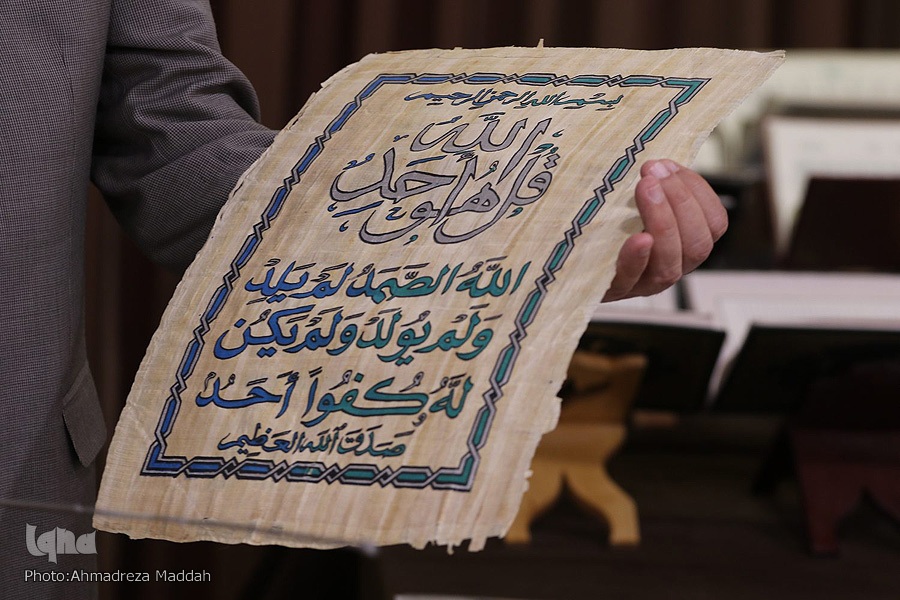 بسم الله الرحمن الرحيم
قُلْ هُوَ اللَّهُ أَحَدٌ
اللَّهُ الصَّمَدُ لَمْ يَلِدْ
وَلَمْ يُولَدْ وَلَمْ يَكُنْ
لَهُ كُفُواً أَحَدٌ
صَدَقَ اللَّهُ العَظِيمُ
Iqna
Photo:Ahmadreza Maddah